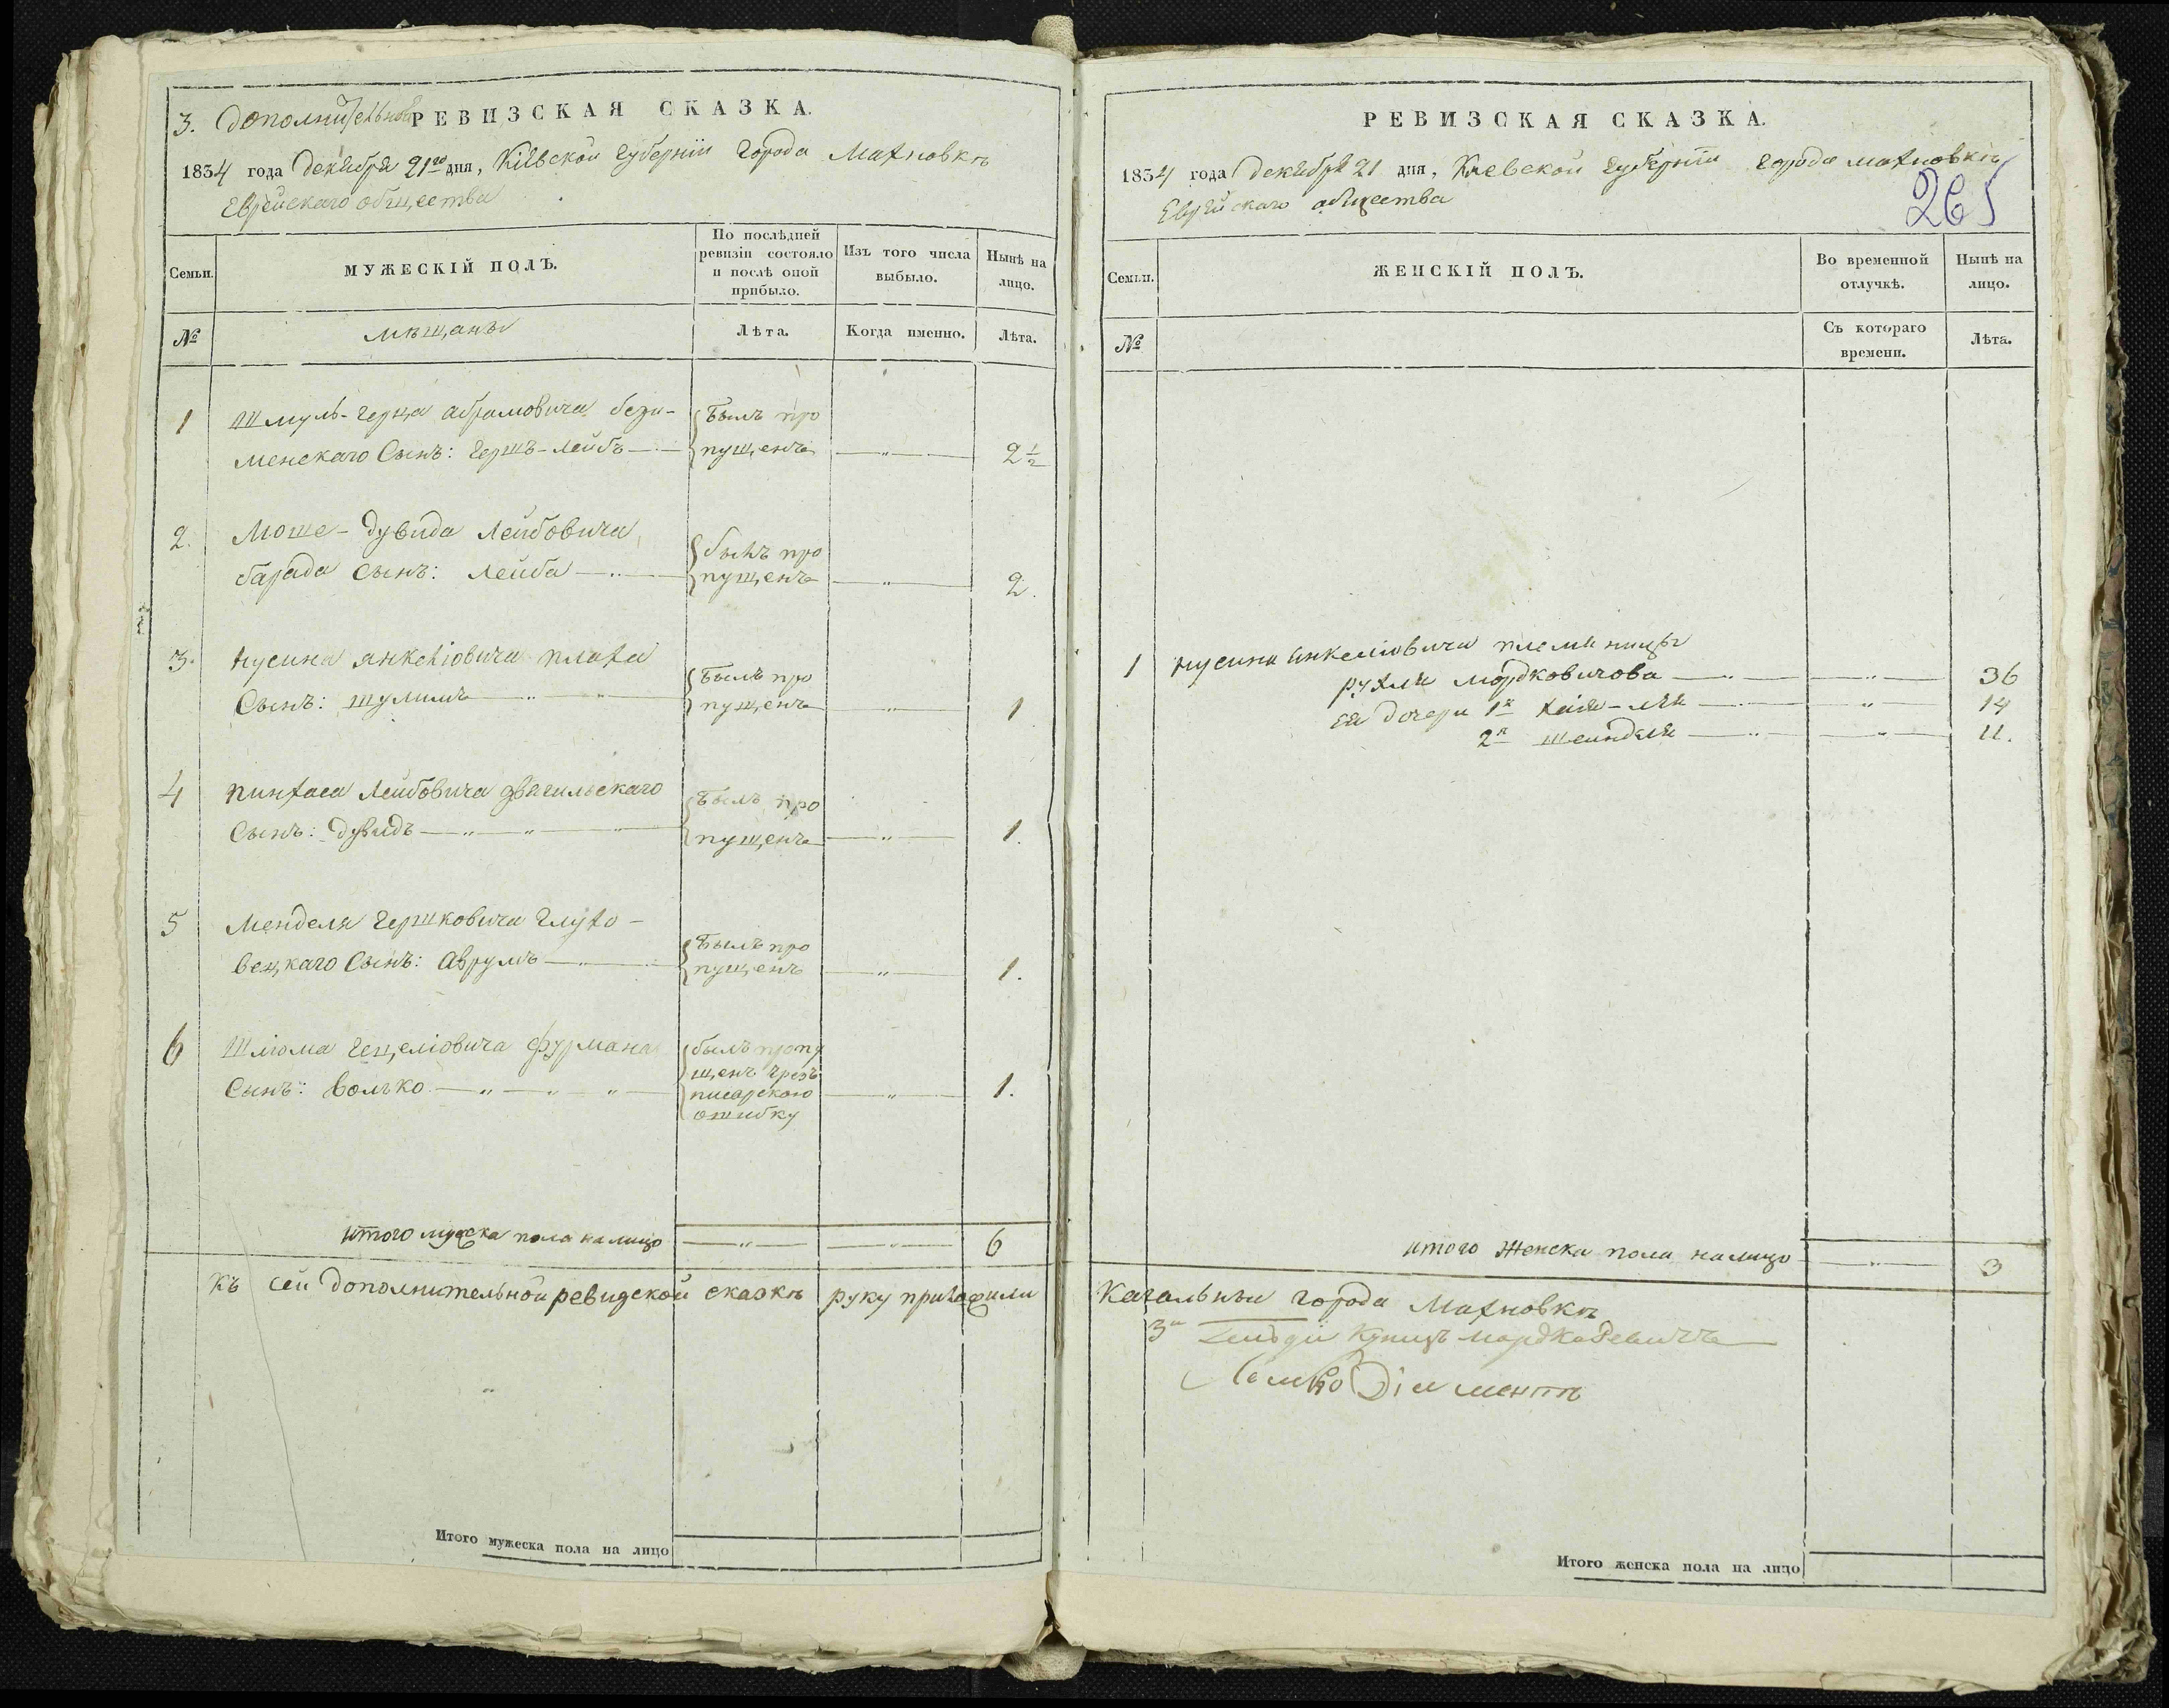 3. Дополнительная РЕВИЗСКАЯ СКАЗКА.
1834 года Декабря 21го дня, Кіевской Губерніи Города Махновкѣ
Еврейскаго общества
Семьи.
МУЖЕСКІЙ ПОЛЪ.
По послѣдней ревизіи состояло и послѣ оной прибыло.
Изъ того числа выбыло.
Нынѣ на лицо.
№
мѣщанъ
Лѣта.
Когда именно.
Лѣта.
1 Шмуль-Герца Абрамовича бези-
менскаго Сынъ: Гершъ-Лейбъ — былъ пропущенъ — " — 2 1/2
2. Моше-Дувида Лейбовича
барада Сынъ: Лейба — " — былъ пропущенъ — " — 2.
3. Нусина Янкеліовича плаха
Сынъ: шулимъ — " — " — былъ пропущенъ — " — 1
4 Пинхаса Лейбовича звягильскаго
Сынъ: Дувидъ — " — " — " — былъ пропущенъ — " — 1.
5 Менделя Гершковича Глухо-
вецкаго Сынъ: Аврумъ — " — былъ пропущенъ — " — 1.
6 Шліома Гецеліовича фурмана
Сынъ: Волько — " — " — " — былъ пропущенъ чрезъ писарскою ошибку — " — 1.
Итого мужеска пола налицо — " — — " — 6
Къ сей дополнительной ревизской сказкѣ руку приложили
Итого мужеска пола на лицо
РЕВИЗСКАЯ СКАЗКА.
1834 года Декабря 21 дня, Киевской Губерніи города Махновкѣ
Еврейскаго общества
265
Семьи.
ЖЕНСКІЙ ПОЛЪ.
Во временной отлучкѣ.
Нынѣ на лицо.
№
Съ котораго времени.
Лѣта.
1 Нусина Янкеліовича племяницы
рухля мордковичова — " — — " — 36
ея дочери 1я Хая-лея — " — — " — 14
2я шейндля — " — — " — 11.
Итого Женска пола налицо — " — 3
Кагальныи города Махновкѣ
3й Гильдіи Купецъ Мордко
Итого женска пола на лицо